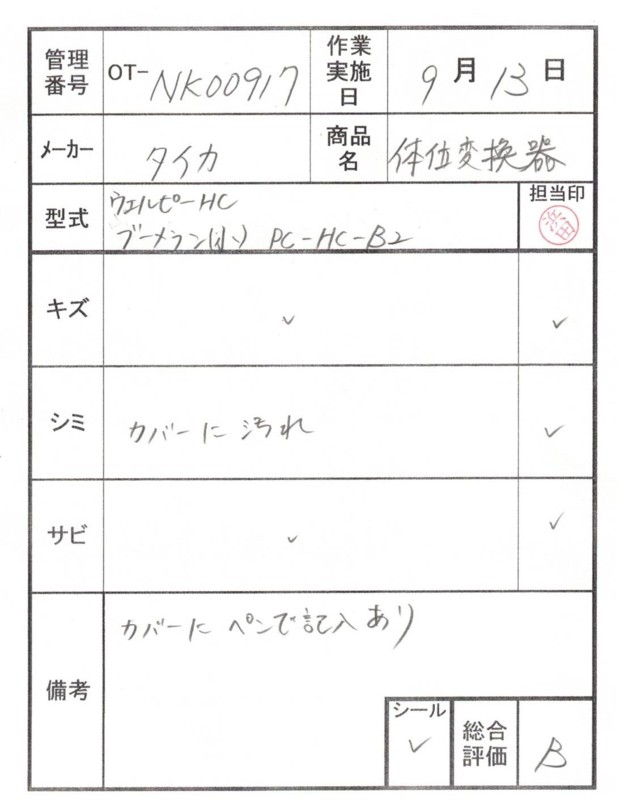 管理番号 OT-NK00917 作業実施日 9月13日
メーカー タイカ 商品名 体位変換器
型式 ウェルピーHC 担当印
ブーメラン(小) PC-HC-B2
キズ ✓ ✓
シミ カバーに汚れ ✓
サビ ✓ ✓
備考 カバーにペンで記入あり
シール ✓ 総合評価 B